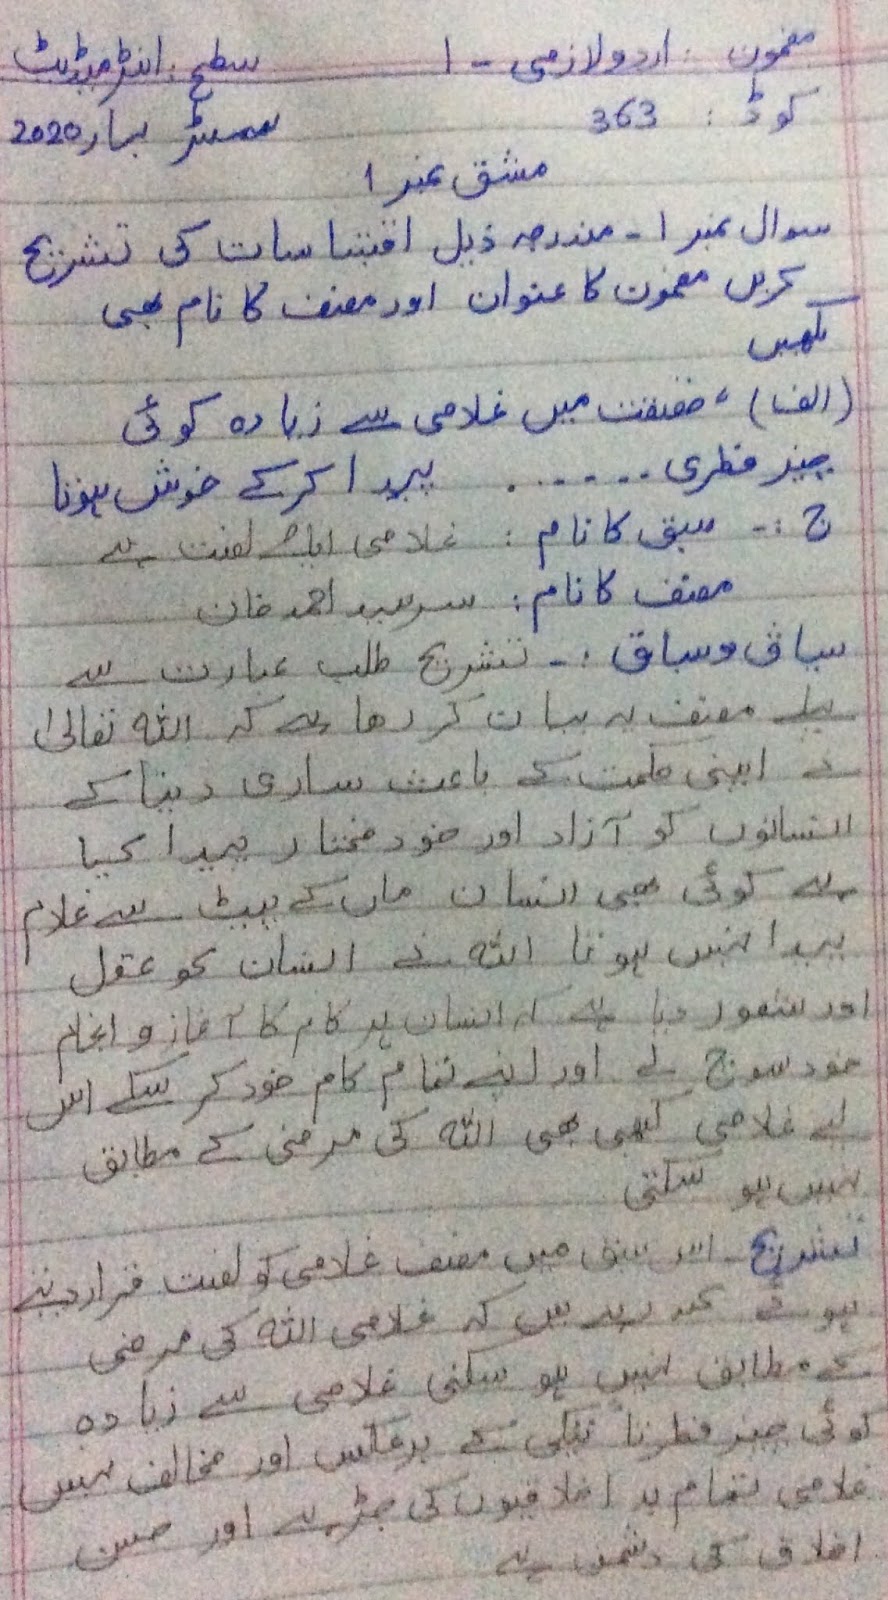 مضمون : اردو لازمی - ۱ سطح: انٹرمیڈیٹ
کوڈ : 363 سمسٹر بہار 2020
مشق نمبر ۱
سوال نمبر ۱ - مندرجہ ذیل اقتباسات کی تشریح
کریں مضمون کا عنوان اور مصنف کا نام بھی
لکھیں
(الف) ، حقیقت میں غلامی سے زیادہ کوئی
چیز فطری ...... پیدا کرکے خوش ہونا
ج :- سبق کا نام : غلامی ایک لعنت ہے
مصنف کا نام : سرسید احمد خان
سیاق و سباق :- تشریح طلب عبارت سے
پہلے مصنف یہ بیان کر رھا ہے کہ اللہ تعالیٰ
نے اپنی حکمت کے باعث ساری دنیا کے
انسانوں کو آزاد اور خود مختار پیدا کیا
ہے کوئی بھی انسان ماں کے پیٹ سے غلام
پیدا نہیں ہوتا اللہ نے انسان کو عقل
اور شعور دیا ہے کہ انسان ہر کام کا آغاز و انجام
خود سوچ لے اور اپنے تمام کام خود کر سکے اس
لیے غلامی کبھی بھی اللہ کی مرضی کے مطابق
نہیں ہو سکتی
تشریح - اس سبق میں مصنف غلامی کو لعنت قرار دیتے
ہوئے کہہ رہے ہیں کہ غلامی اللہ کی مرضی
کے مطابق نہیں ہو سکتی غلامی سے زیادہ
کوئی چیز فطرتاً نیکی کے برعکس اور مخالف نہیں
غلامی تمام بد اخلاقیوں کی جڑ ہے اور حسن
اخلاق کی دشمن ہے